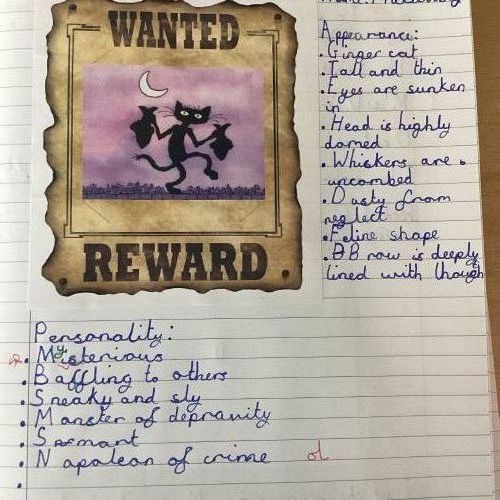 WANTED
REWARD
Appearance:
. Ginger cat
. Tall and thin
. Eyes are sunken
in
. Head is highly
domed
. Whiskers are
uncombed
. Dusty from
neglect
. Feline shape
. B Brow is deeply
lined with though
Personality:
. Mysterious
. Baffling to others
. Sneaky and sly
. Monster of depravity
. Smart
. Napolean of crime ol